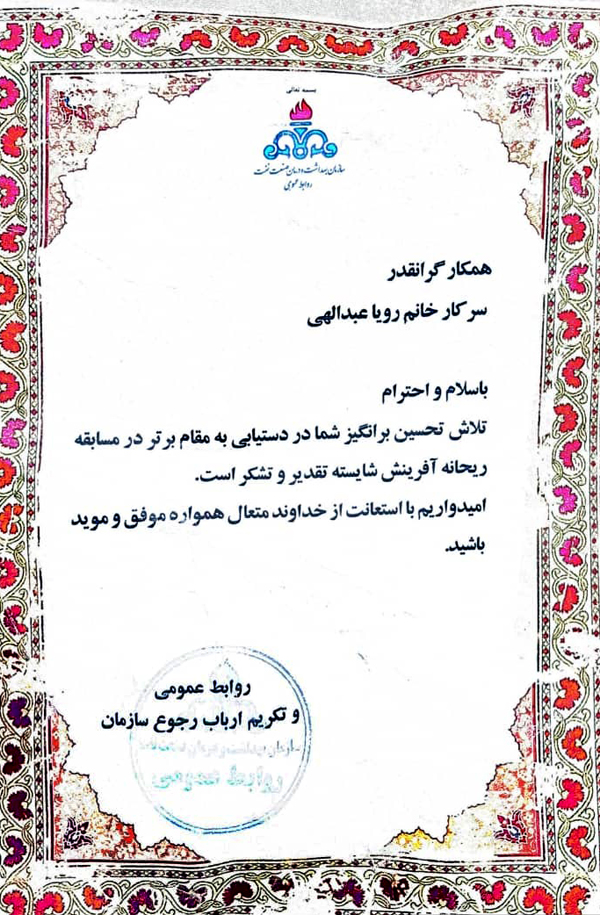 بسمه تعالی
سازمان بهداشت و درمان صنعت نفت
روابط عمومی
همکار گرانقدر
سرکار خانم رویا عبدالهی
باسلام و احترام
تلاش تحسین برانگیز شما در دستیابی به مقام برتر در مسابقه
ریحانه آفرینش شایسته تقدیر و تشکر است.
امیدواریم با استعانت از خداوند متعال همواره موفق و موید
باشید.
روابط عمومی
و تکریم ارباب رجوع سازمان
سازمان بهداشت و درمان صنعت نفت
روابط عمومی